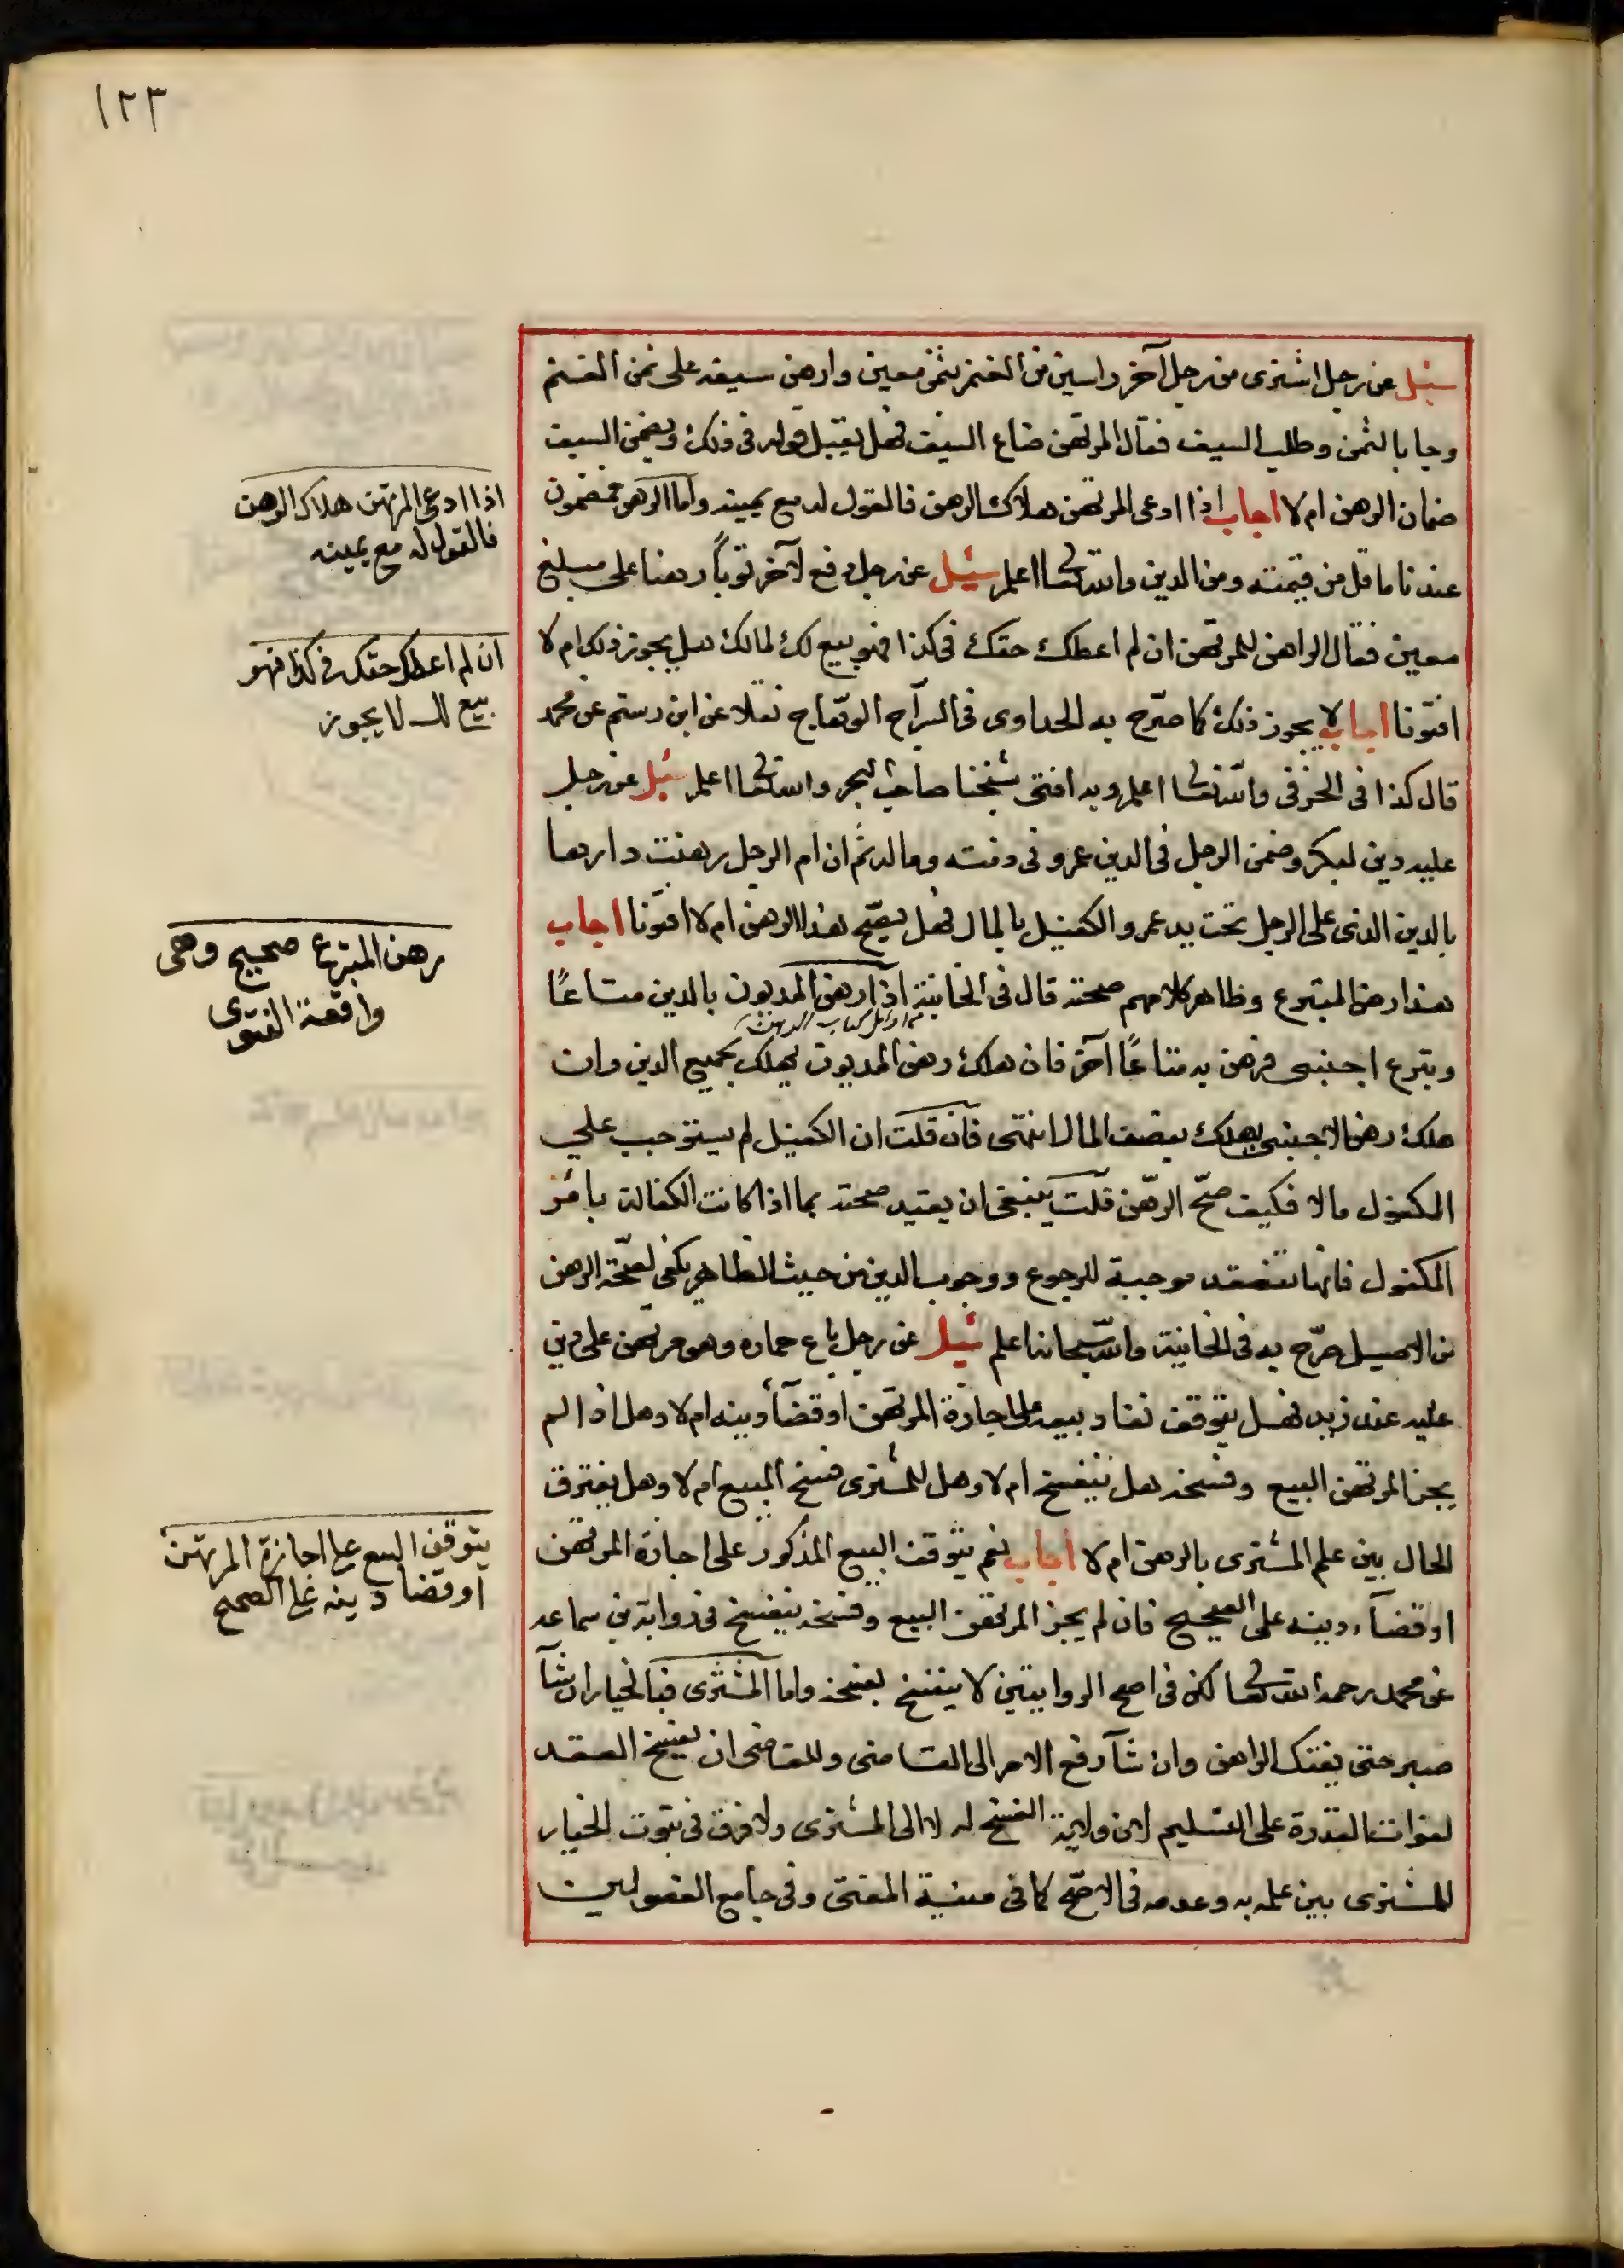 ١٢٣
سئل عن رجل اشترى من رجل آخر راسين من الغنم بثمن معين وارهن سيفه على ثمن الغنم
وجا بالثمن وطلب السيف فقال المرتهن ضاع السيف فهل يقبل قوله في ذلك ويضمن السيف
ضمان الرهن ام لا اجاب اذا ادعى المرتهن هلاك الرهن فالقول له مع يمينه واما الرهن فمضمون
عندنا ما قل من قيمته ومن الدين والله تعالى اعلم سئل عن رجل دفع لآخر ثوباً رهنا على مبلغ
معين فقال الراهن للمرتهن ان لم اعطك حقك في كذا فهو بيع لك بمالك هل يجوز ذلك ام لا
افتونا اجاب لا يجوز ذلك كما صرّح به الحداوى في السراج الوهّاج نقلا عن ابن رستم عن محمد
قال كذا في الخزفى والله تعالى اعلم وبه افتى شيخنا صاحب البحر والله تعالى اعلم سئل عن رجل
عليه دين لبكر وضمن الرجل في الدين عمرو في ذمته وماله ثم ان ام الرجل رهنت دارها
بالدين الذي على الرجل تحت يد عمرو الكفيل بالمال فهل يصحّ هذا الرهن ام لا افتونا اجاب
هذا رهن المتبرع وظاهر كلامهم صحته قال في الخانية اذا رهن المديون بالدين متاعًا
من اوائل كتاب الرهن
وتبرع اجنبي فرهن به متاعًا آخر فان هلك رهن المديون يهلك بجميع الدين وان
هلك رهن الاجنبي يهلك بنصف المال انتهى فان قلت ان الكفيل لم يستوجب على
المكفول مالا فكيف صحّ الرهن قلت ينبغي ان يقيد صحته بما اذا كانت الكفالة بامر
المكفول فانها تنعقد موجبة للرجوع ووجوب الدين من حيث الظاهر يكفى لصحّة الرهن
من الاصيل صرّح به في الخانية والله سبحانه اعلم سئل عن رجل باع حماره وهو مرتهن على دين
عليه عند زيد فهل يتوقف نفاد بيعه على اجازة المرتهن او قضآء دينه ام لا وهل اذا لم
يجز المرتهن البيع وفسخه هل ينفسخ ام لا وهل للمشترى فسخ المبيع ام لا وهل يفترق
الحال بين علم المشترى بالرهن ام لا اجاب نعم يتوقف البيع المذكور على اجازة المرتهن
او قضآء دينه على الصحيح فان لم يجز المرتهن البيع وفسخه ينفسخ في رواية بن سماعه
عن محمد رحمه الله تعالى لكن في اصح الروايتين لا ينفسخ بفسخه واما المشترى فبالخيار ان شآ
صبر حتى يفتك الراهن وان شآ رفع الامر الى القاضى وللقاضى ان يفسخ العقد
لفوات القدرة على التسليم لان ولاية الفسخ له لا الى المشترى ولا فرق في ثبوت الخيار
للمشترى بين علمه به وعدمه في الاصّح كما في منية المفتى وفي جامع الفصولين
اذا ادعى المرتهن هلاك الرهن
فالقول له مع يمينه
ان لم اعطك حقك في كذا فهو
بيع لك لا يجوز
رهن المتبرع صحيح وهى
واقعة الفتوى
يتوقف البيع على اجازة المرتهن
او قضا دينه على الصحيح